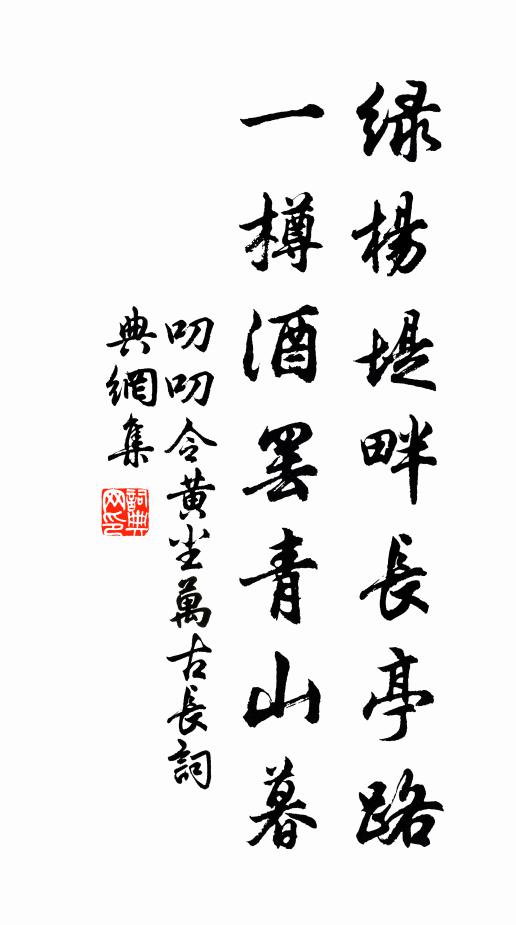 绿楊堤畔長亭路
一樽酒罢青山暮
叨叨令黄尘萬古長詞
典網集
詞典网印